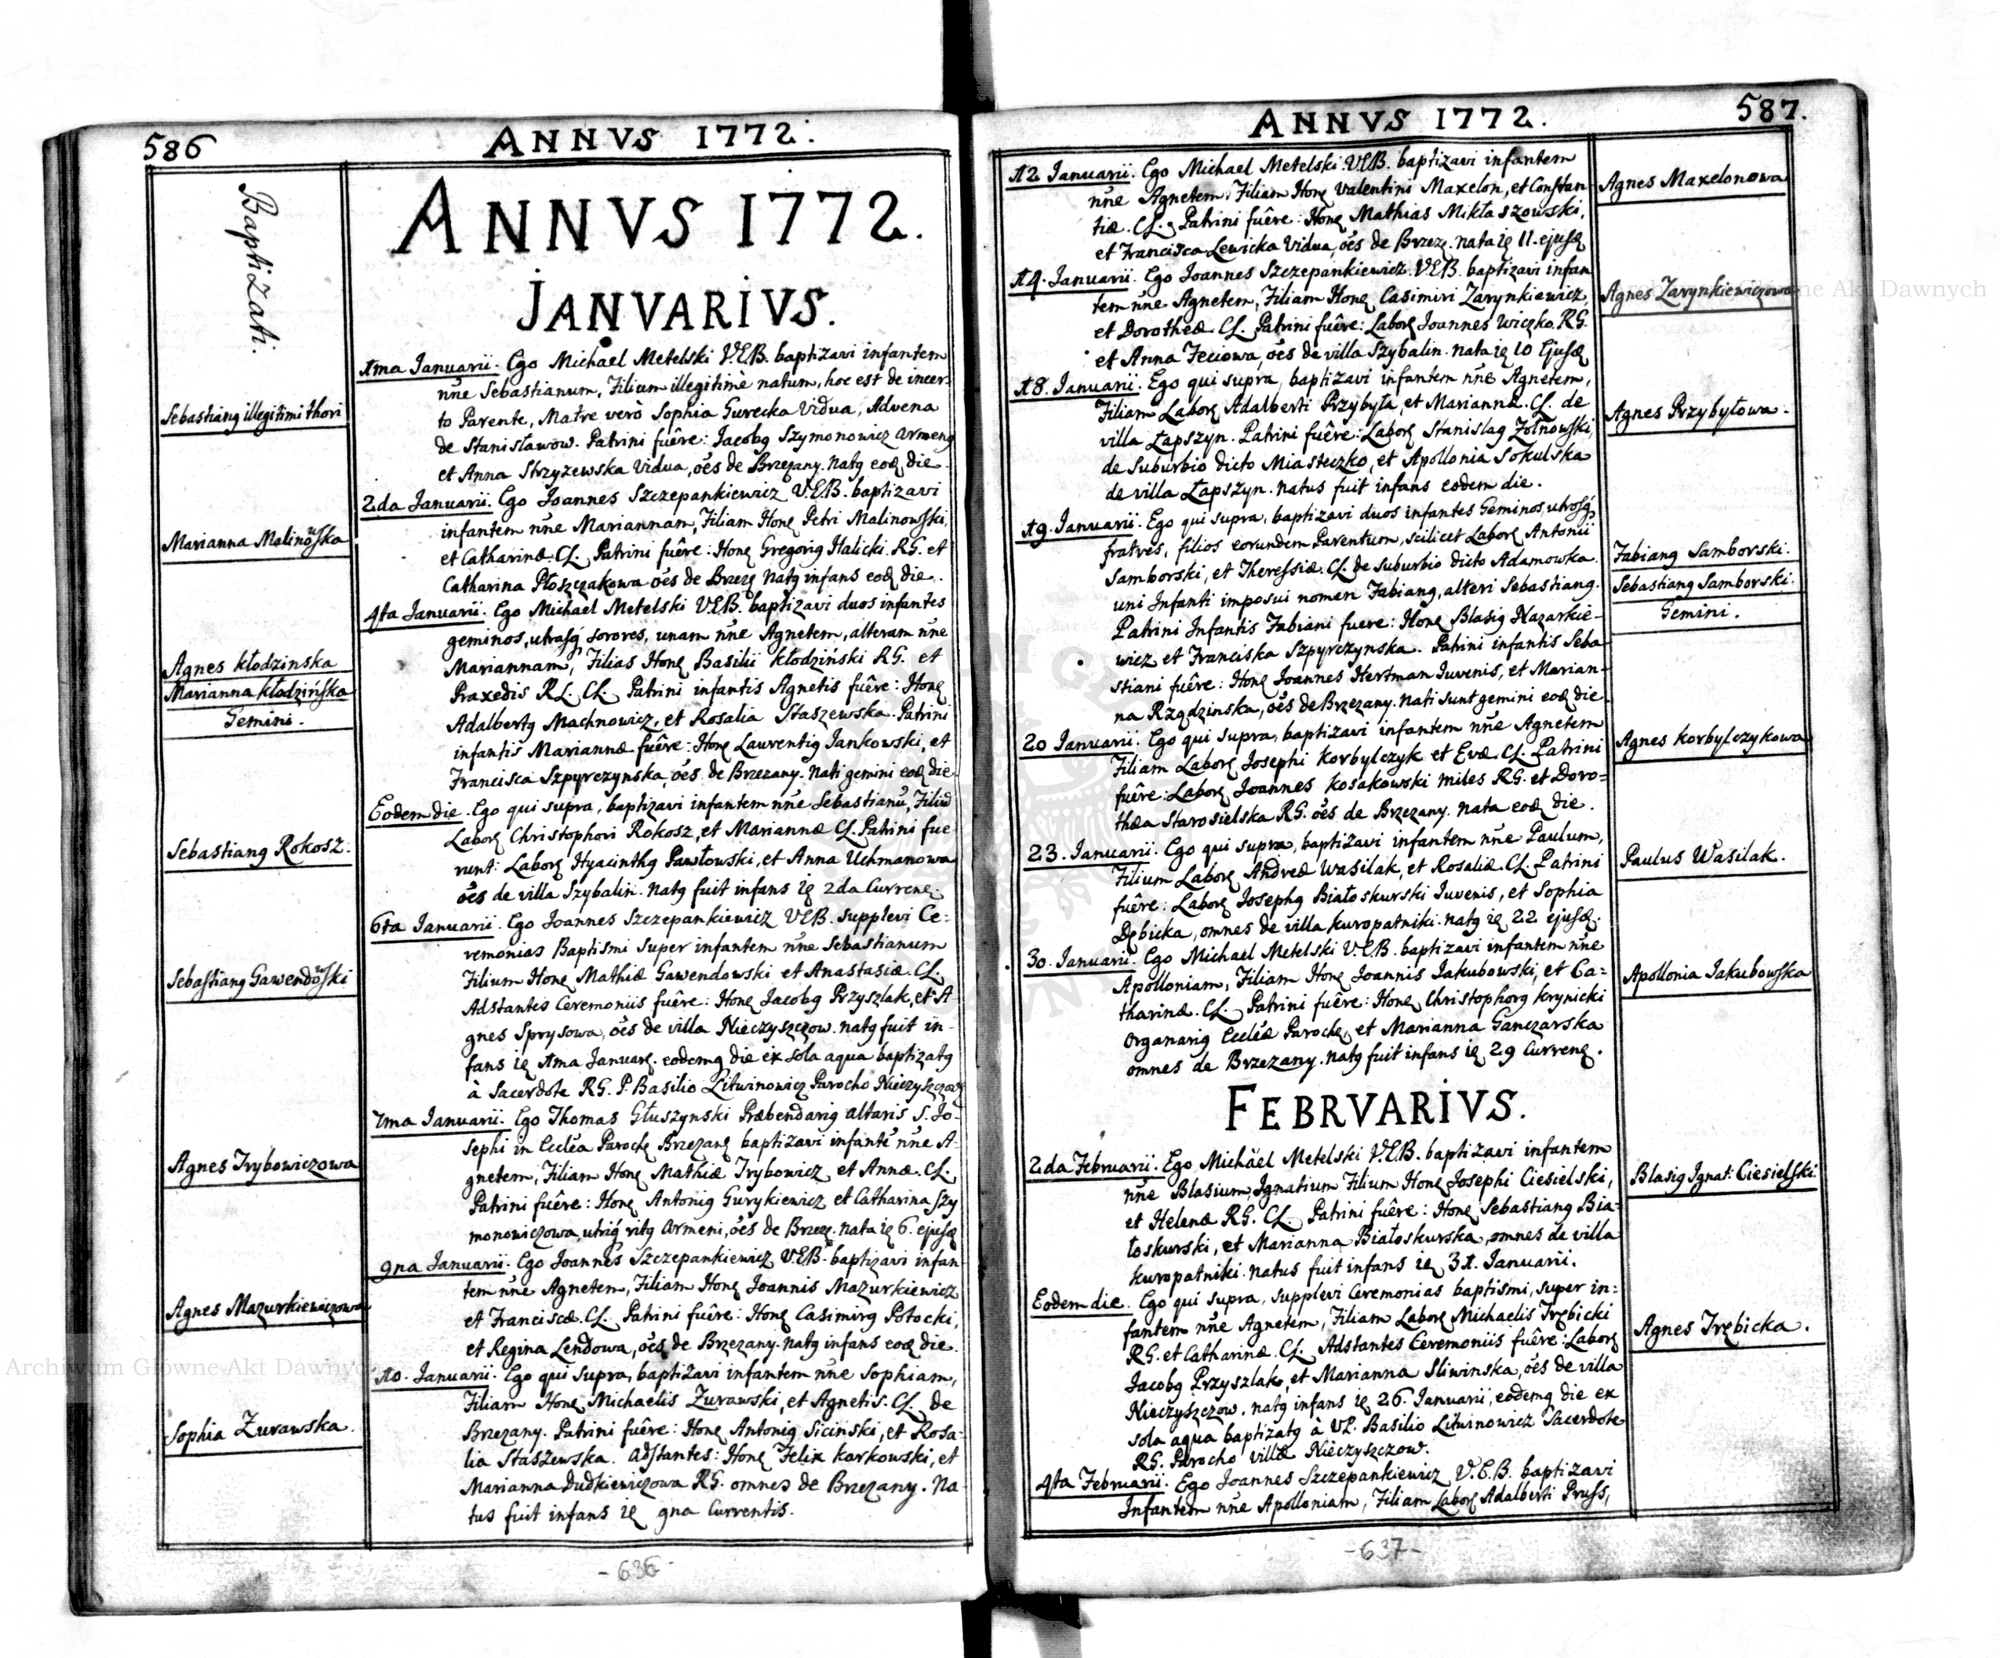 586
ANNVS 1772.
Baptizati.
ANNVS 1772.
JANVARIVS.
1ma Ianuarii. Ego Michael Metelski V.E.B. baptizavi infantem
nñe Sebastianum, Filium illegitimè natum, hoc est de incer-
to Parente, Matre verò Sophia Gurecka Vidua, Advena
de Stanisławow. Patrini fuêre: Jacobꝯ Szymonowicz Armenꝯ
et Anna Strzyżewska Vidua, oẽs de Brzezany. Natꝯ eoꝺ die.
Sebastianꝯ illegitimi thori
2da Januarii. Ego Joannes Szczepankiewicz V.E.B. baptizavi
infantem nñe Mariannam, Filiam Honꝝ Petri Malinowski,
et Catharinæ. CL. Patrini fuêre: Honꝝ Gregoriꝯ Halicki. RG. et
Catharina Płoszczakowa oẽs de Brzez. Natꝯ infans eoꝺ die.
Marianna Malinowska
4ta Januarii. Ego Michael Metelski V.E.B. baptizavi duos infantes
geminos, utrasꝗ sorores, unam nñe Agnetem, alteram nñe
Mariannam, Filias Honꝝ Basilii Kłodziński RG. et
Praxedis RL. CL. Patrini infantis Agnetis fuêre: Honꝝ
Adalbertꝯ Machnowicz, et Rosalia Staszewska. Patrini
infantis Mariannæ fuêre: Honꝝ Laurentiꝯ Jankowski, et
Francisca Szpyrczynska, oẽs de Brzezany. Nati gemini eoꝺ die
Agnes Kłodzinska
Marianna Kłodzińska
Gemini.
Eodem die. Ego qui supra, baptizavi infantem nñe Sebastianũ, Filiũ
Laborꝝ Christophori Rokosz, et Mariannæ CL. Patrini fue
runt: Laborꝝ Hyacinthꝯ Pawłowski, et Anna Uchmanowa
oẽs de villa Szybalin. Natꝯ fuit infans ię 2da Currenꝝ.
Sebastianꝯ Rokosz.
6ta Januarii. Ego Joannes Szczepankiewicz V.E.B. supplevi Ce-
remonias Baptismi super infantem nñe Sebastianum
Filium Honꝝ Mathiæ Gawendowski et Anastasiæ. CL.
Adstantes Ceremoniis fuêre: Honꝝ Jacobꝯ Przyszlak, et A-
gnes Sprysowa, oẽs de villa Nieczyszczow. Natꝯ fuit in-
fans ię 1ma Januarꝝ. eodemꝗ die ex sola aqua baptizatꝯ
à Sacerdote RG. P. Basilio Litwinowicz Parocho Nieczyszczow
Sebastianꝯ Gawendowski
7ma Januarii. Ego Thomas Głuszynski Præbendariꝯ altaris S. Jo-
sephi in Ecclẽa Parochꝝ Brzezanꝝ baptizavi infantẽ nñe A-
gnetem, Filiam Honꝝ Mathiæ Trybowicz et Annæ. CL.
Patrini fuêre: Honꝝ Antoniꝯ Gurykiewicz et Catharina Szy
monowiczowa, utriꝗ ritꝯ Armeni, oẽs de Brzez. Nata ię 6. ejusꝺ
Agnes Trybowiczowa
9na Januarii. Ego Joannes Szczepankiewicz V.E.B. baptizavi infan-
tem nñe Agnetem, Filiam Honꝝ Joannis Mazurkiewicz
et Franciscæ. CL. Patrini fuêre: Honꝝ Casimirꝯ Potocki,
et Regina Lendowa, oẽs de Brzezany. Natꝯ infans eoꝺ die.
Agnes Mazurkiewiczowa
10. Januarii. Ego qui supra, baptizavi infantem nñe Sophiam,
Filiam Honꝝ Michaelis Zurawski, et Agnetis. CL. de
Brzezany. Patrini fuêre: Honꝝ Antoniꝯ Siciński, et Rosa-
lia Staszewska. adstantes: Honꝝ Felix Karkowski, et
Marianna Dudkiewiczowa RG. omnes de Brzezany. Na-
tus fuit infans ię 9na Currentis.
Sophia Zurawska.
-636-
587.
ANNVS 1772.
12 Januarii. Ego Michael Metelski V.E.B. baptizavi infantem
nñe Agnetem, Filiam Honꝝ Valentini Maxelon, et Constan-
tiæ. CL. Patrini fuêre: Honꝝ Mathias Mikłaszowski,
et Francisca Lewicka Vidua, oẽs de Brzez. Nata ię 11. ejusꝺ
Agnes Maxelonowa
14. Januarii. Ego Joannes Szczepankiewicz. V.E.B. baptizavi infan
tem nñe Agnetem, Filiam Honꝝ Casimiri Zarynkiewicz,
et Dorotheæ. CL. Patrini fuêre: Laborꝝ Joannes Wiczko. RG.
et Anna Feciowa, oẽs de villa Szybalin. Nata ię 10 Ejusꝺ
Agnes Zarynkiewiczowa
18. Januarii. Ego qui supra, baptizavi infantem nñe Agnetem,
Filiam Laborꝝ Adalberti Przybyła, et Mariannæ. CL. de
villa Łapszyn. Patrini fuêre: Laborꝝ Stanislaꝯ Zołnowski,
de Suburbio dicto Miasteczko, et Apollonia Sokulska
de villa Łapszyn. Natus fuit infans eodem die.
Agnes Przybyłowa.
19. Januarii. Ego qui supra, baptizavi duos infantes Geminos, utrosꝗ
fratres, filios eorundem Parentum, scilicet Laborꝝ Antonii
Samborski, et Theressiæ. CL de Suburbio dicto Adamowka.
uni Infanti imposui nomen Fabianꝯ, alteri Sebastianꝯ.
Patrini Infantis Fabiani fuere: Honꝝ Blasiꝯ Nazarkie-
wicz et Franciska Szpyrczynska. Patrini infantis Seba
stiani fuêre: Honꝝ Joannes Hertman Juvenis, et Marian-
na Rządzinska, oẽs de Brzezany. Nati sunt gemini eoꝺ die.
Fabianꝯ Samborski.
Sebastianꝯ Samborski.
Gemini.
20 Januarii. Ego qui supra, baptizavi infantem nñe Agnetem
Filiam Laborꝝ Josephi Korbylczyk et Evæ. CL. Patrini
fuêre: Laborꝝ Joannes Kosakowski miles RG. et Doro-
thæa Starosielska RG. oẽs de Brzezany. Nata eoꝺ die.
Agnes Korbylczykowa
23. Januarii. Ego qui supra, baptizavi infantem nñe Paulum,
Filium Laborꝝ Andreæ Wasilak, et Rosaliæ. CL. Patrini
fuêre: Laborꝝ Josephꝯ Białoskurski Juvenis, et Sophia
Dębicka, omnes de villa Kuropatniki. Natꝯ ię 22 ejusꝺ.
Paulus Wasilak.
30. Januarii. Ego Michael Metelski V.E.B. baptizavi infantem nñe
Apolloniam, Filiam Honꝝ Joannis Jakubowski, et Ca-
tharinæ. CL. Patrini fuêre: Honꝝ Christophorꝯ Krynicki
Organariꝯ Ecclẽæ Parochꝝ, et Marianna Ganczarska
omnes de Brzezany. Natꝯ fuit infans ię 29 Currenꝝ.
Apollonia Jakubowska
FEBRVARIVS.
2da Februarii. Ego Michäel Metelski V.E.B. baptizavi infantem
nñe Blasium, Ignatium Filium Honꝝ Josephi Ciesielski,
et Helenæ RG. CL. Patrini fuêre: Honꝝ Sebastianꝯ Bia-
łoskurski, et Marianna Białoskurska, omnes de villa
Kuropatniki. Natus fuit infans ię 31. Januarii.
Blasiꝯ Ignat: Ciesielski.
Eodem die. Ego qui supra, supplevi Ceremonias baptismi, super in-
fantem nñe Agnetem, Filiam Laborꝝ Michaelis Trębicki
RG. et Catharinæ. CL. Adstantes Ceremoniis fuêre: Laborꝝ
Jacobꝯ Przyszlak, et Marianna Sliwinska, oẽs de villa
Nieczyszczow. Natꝯ infans ię 26. Januarii, eodemꝗ die ex
sola aqua baptizatꝯ à VP. Basilio Litwinowicz Sacerdote
RG. Parocho villæ Nieczyszczow.
Agnes Trębicka.
4ta Februarii. Ego Joannes Szczepankiewicz V.E.B. baptizavi
Infantem nñe Apolloniam, Filiam Laborꝝ Adalberti Pruss,
-637-
Archiwum Główne Akt Dawnych
Archiwum Główne Akt Dawnych